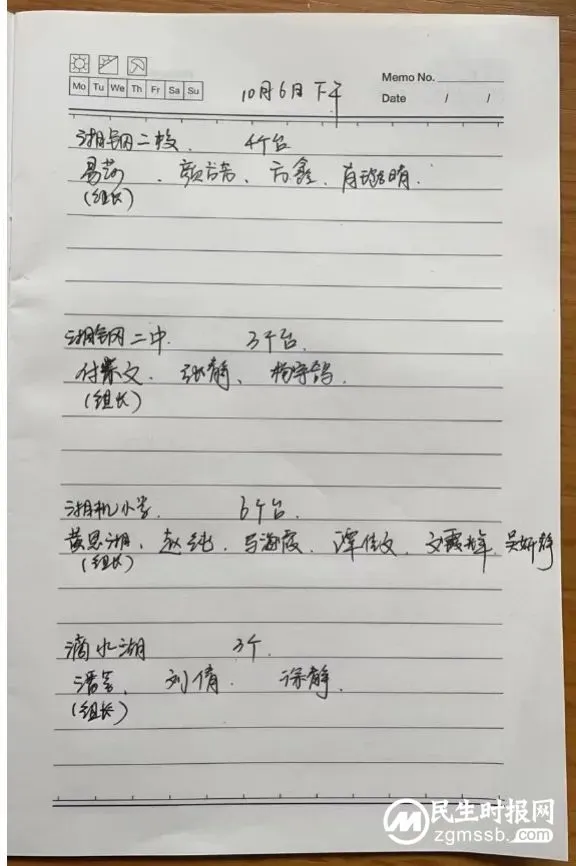 Memo No.
Mo Tu We Th Fr Sa Su
Date / /
10月6日下午
湘钢二校. 4个台
易莎、颜喆、方鑫、肖 晴.
(组长)
湘钢二中. 3个台.
付紫文. 张静、杨宇鸽.
(组长)
湘机小学. 6个台.
黄思湘、赵纯、马海霞、谭佳文、文霞辉、吴妍静
(组长)
滴水湖 3个.
潘 、刘倩. 徐静.
(组长)
民生时报网
zgmssb.com